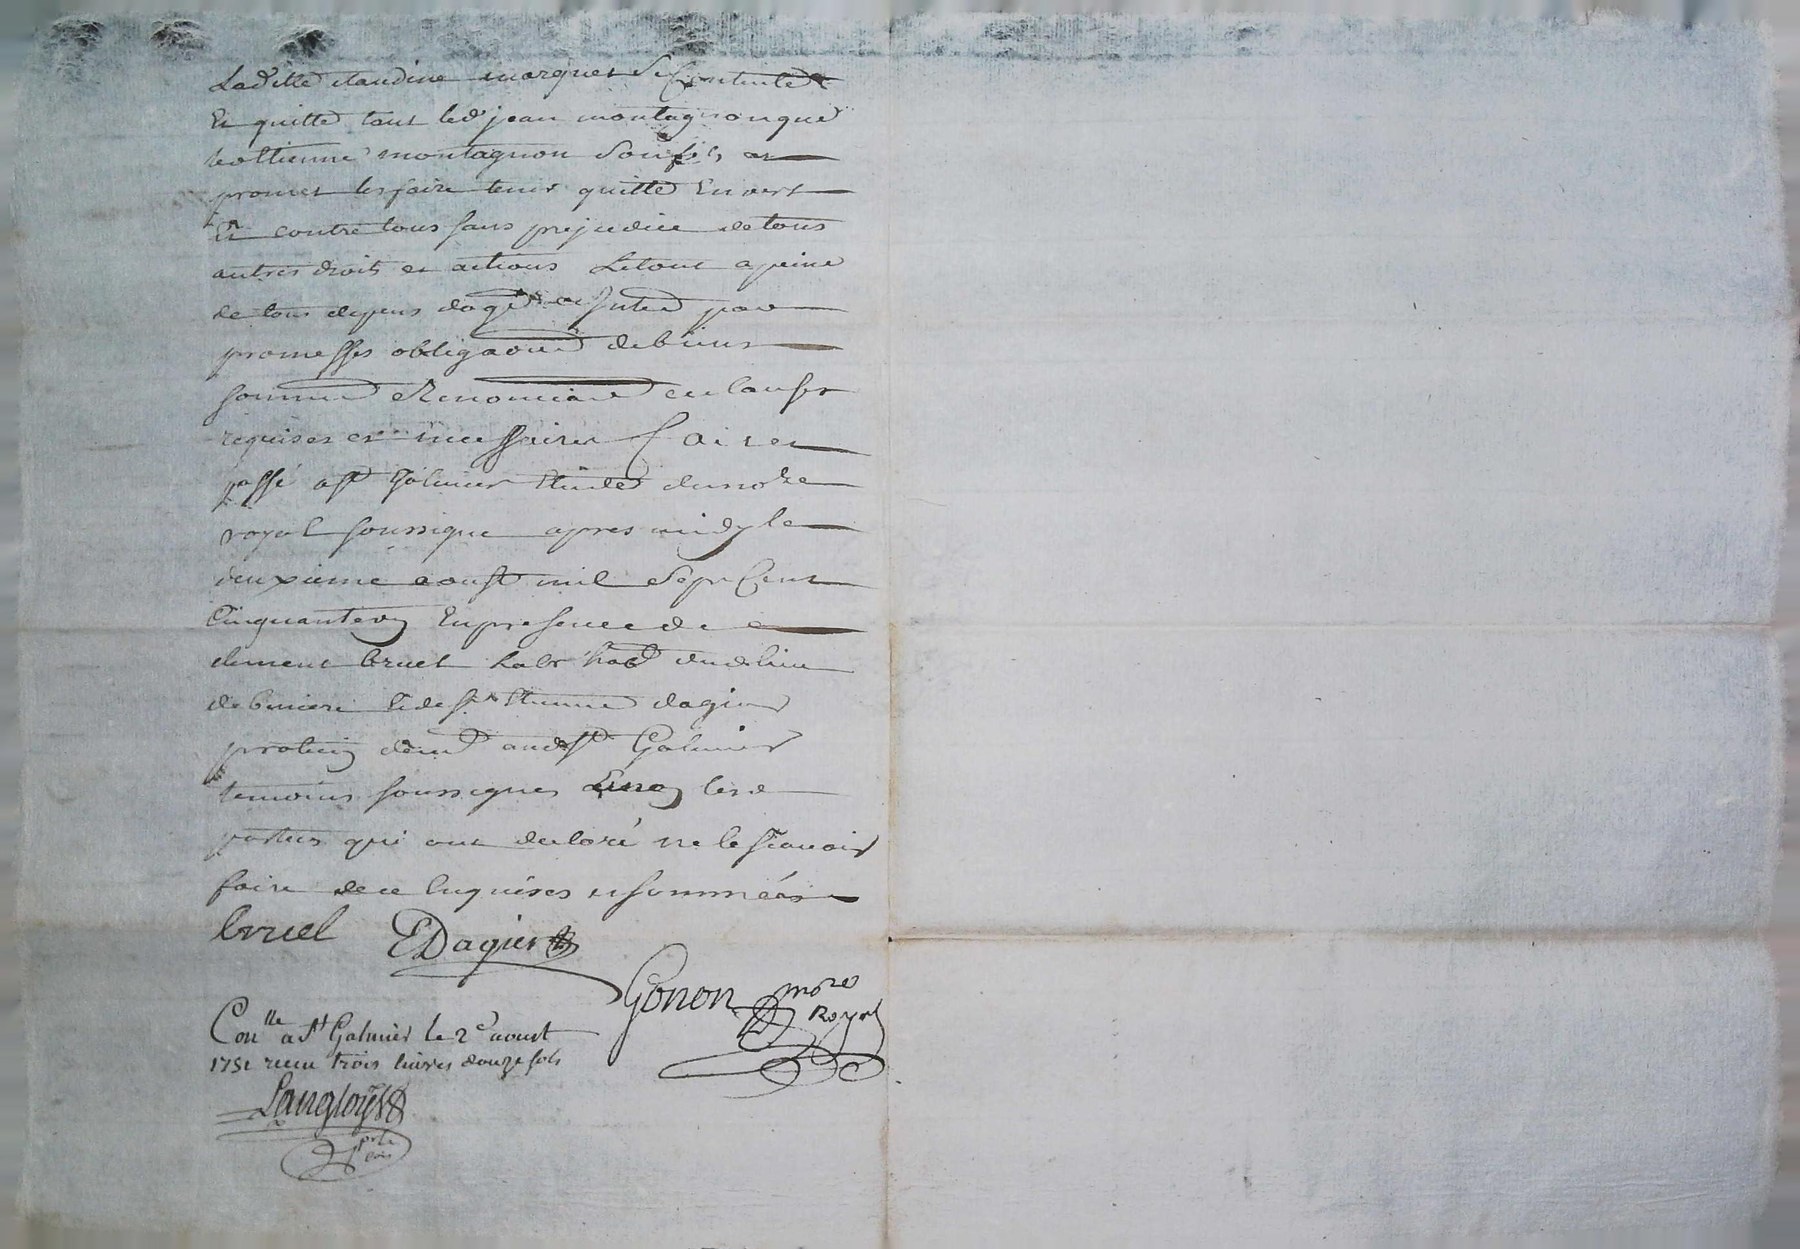 Ladite claudine marquet Se Contente
Et quitte tant led' jean montagnon que
montagnon Son fils et
promet les faire tenir quitte Envers
Et contre tous sans prejudice de tous
autres droits et actions Le tout a peine
de tous depens domges et Interest par
promesses obligaons de biens
soumions Renonciaons clauses
requises et necessaires fait et
passé a st Galmier Etude du notre
royal soussigné apres midy le
deuxieme aoust mil Sept Cent
Cinquante un En presence de
clement bruel Labr habt du lieu
de St Etienne dagier
praticien demt aud st Galmier
temoins soussignés non les
parties qui ont declaré ne le sçavoir
faire de ce Enquises et sommées
bruel EDagier
Gonon notre Royal
Conlle a st Galmier le 2e aoust
1751 receu trois livres douze sols
Langlois